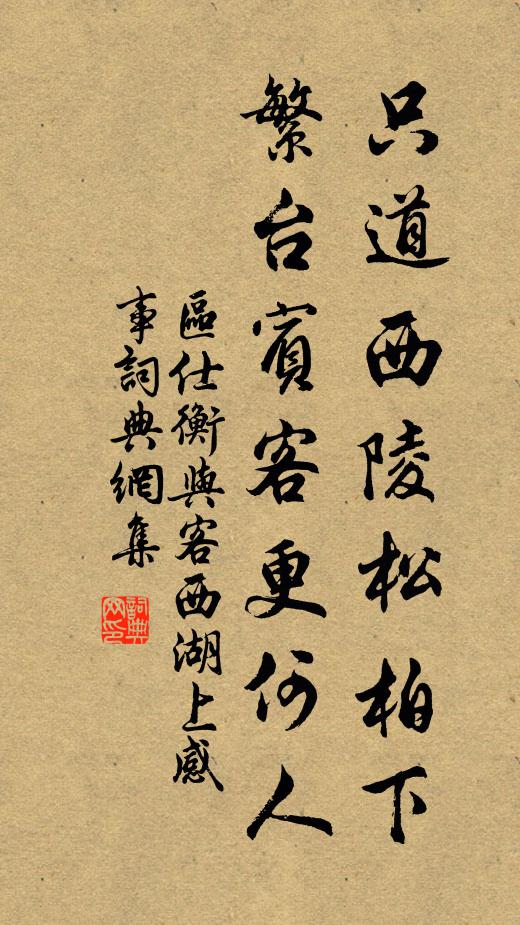 只道西陵松柏下
繁台賓客更何人
區仕衡與客西湖上感
事詞典網集
詞典
网印